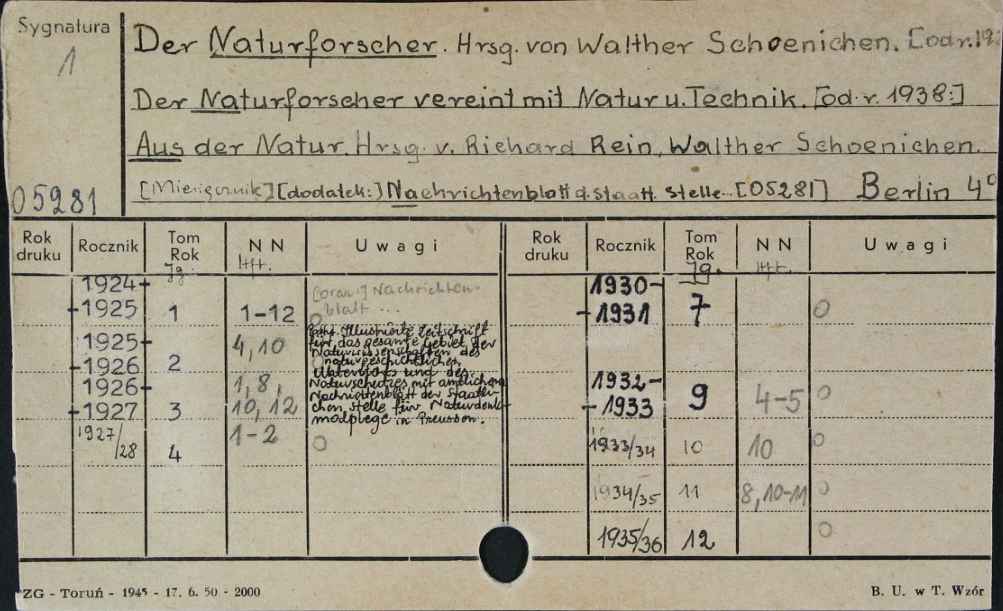 Sygnatura
1
05281
Der Naturforscher. Hrsg. von Walther Schoenichen. [od r. 19
Der Naturforscher vereint mit Natur u. Technik. [od. r. 1938:]
Aus der Natur. Hrsg. v. Richard Rein, Walther Schoenichen.
[Miesięcznik] [dodatek:] Nachrichtenblatt d. staatl. Stelle... [05281] Berlin 4°
Rok druku Rocznik Tom Rok NN Uwagi Rok druku Rocznik Tom Rok NN Uwagi
Jg. Hft. Jg. Hft.
1924-
-1925 1 1-12 [oraz:] Nachrichten-
blatt ...
O
1925-
-1926 2 4, 10
1926-
-1927 3 1, 8, 10, 12
1927/28 4 1-2 O
Illustrierte Zeitschrift
für das gesamte Gebiet der
Naturwissenschaften des
naturgeschichtlichen
Unterrichts und des
Naturschutzes mit amtlichem
Nachrichtenblatt der Staatli-
chen Stelle für Naturdenk-
malpflege in Preussen.
1930-
-1931 7 O
1932-
-1933 9 4-5 O
1933/34 10 10 O
1934/35 11 8, 10-11 O
1935/36 12 O
ZG - Toruń - 1945 - 17. 6. 50 - 2000
B. U. w T. Wzór